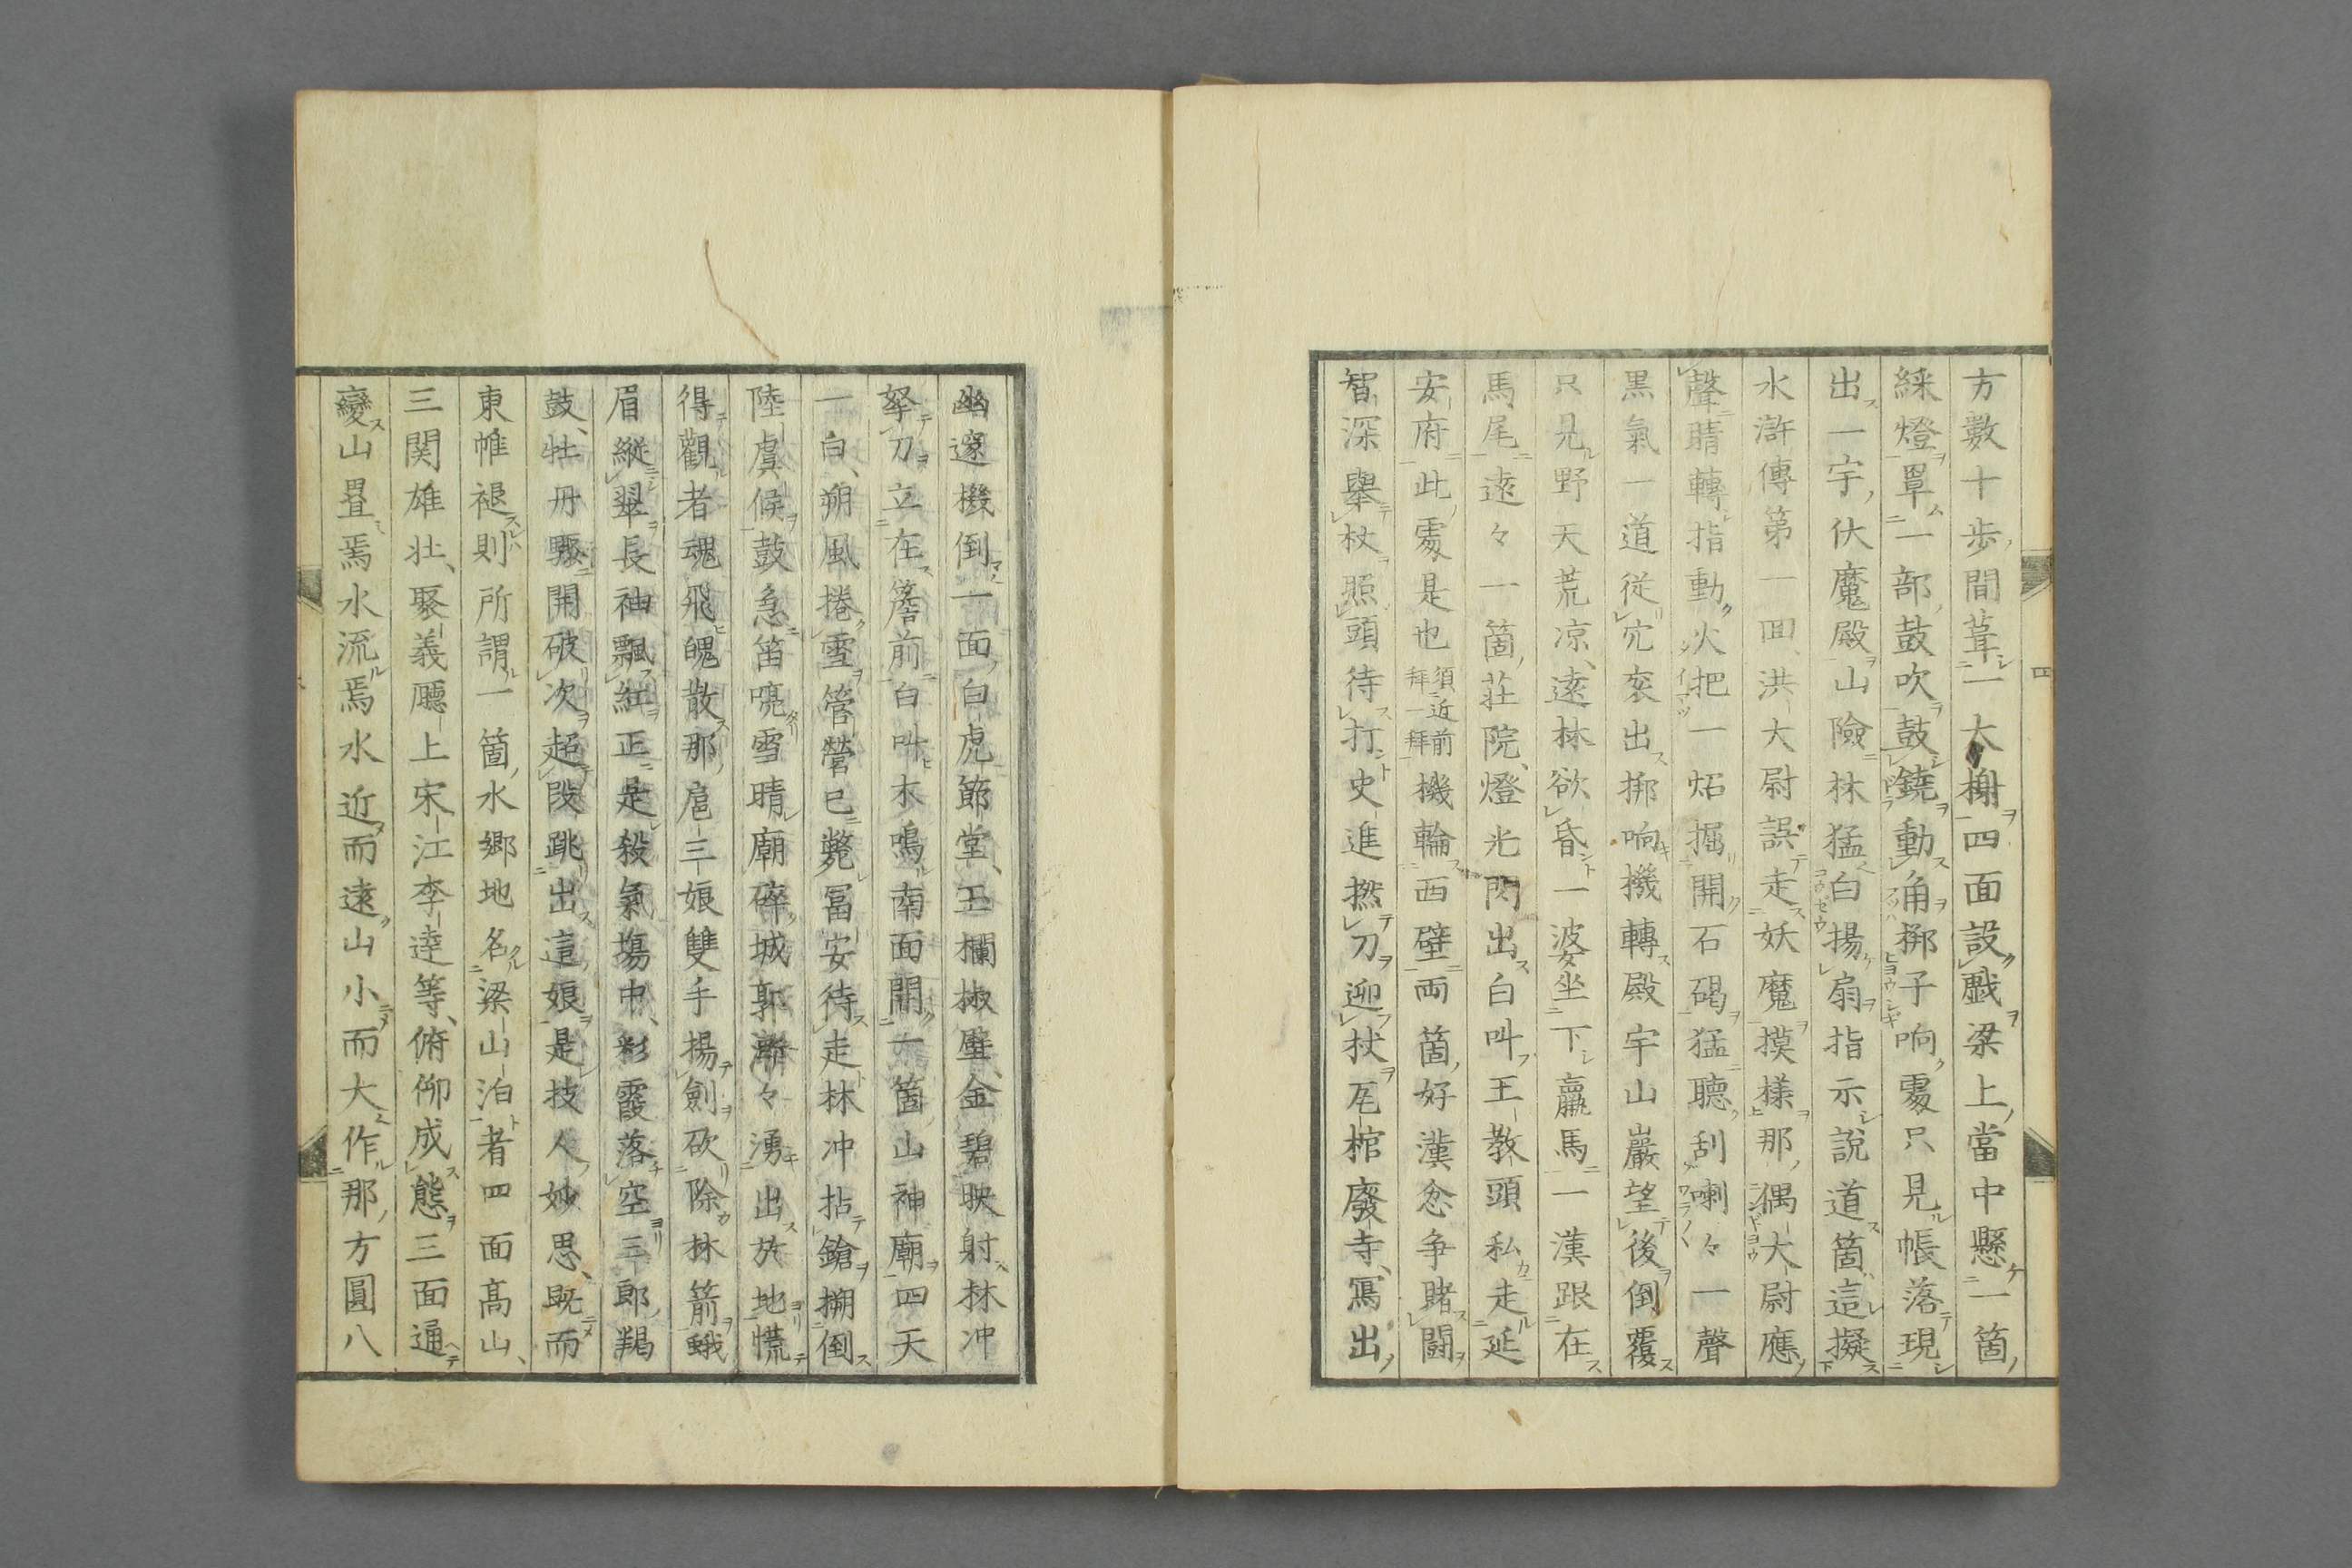 方數十歩間葺一大榭四面設戲梁上當中懸一箇
綵燈罩一部鼓吹鼓鐃動角梆子响處只見帳落現
出一宇伏魔殿山險林猛白揚扇指示說道箇這擬
水滸傳第一囬洪大尉誤走妖魔摸樣那偶大尉應
聲睛轉指動火把一炻掘開石碣猛聽刮喇々一聲
黒氣一道従穴衮出梆响機轉殿宇山巖望後倒覆
只見野天荒凉遠林欲昏一婆坐下羸馬一漢跟在
馬尾遠々一箇荘院燈光閃出白叫王教頭私走延
安府此處是也須近前拜一拜機輪西壁両箇好漢忿争賭闘
智深擧杖照頭待打史進撚刀迎杖瓦棺廢寺寫出
幽邃機倒一面白虎節堂玉欄椒壁金碧映射林冲
拏刀立在簷前白叫木鳴南面開一箇山神廟四天
一白朔風捲雪管營已斃冨安待走林冲拈鎗搠倒
陸虞候鼓急笛喨雪晴廟碎城郭漸々湧出於地慌
得觀者魂飛魄散那扈三娘雙手揚劍砍除林箭蛾
眉縦翠長袖飄紅正是殺氣塲中彩霞落空三郎羯
鼓牡丹驟開破次超段跳出這娘是技人妙思既而
東帷褪則所謂一箇水郷地名梁山泊者四面髙山
三関雄壮聚義廳上宋江李逵等俯仰成態三面通
變山疊焉水流焉水近而遠山小而大作那方圓八
四